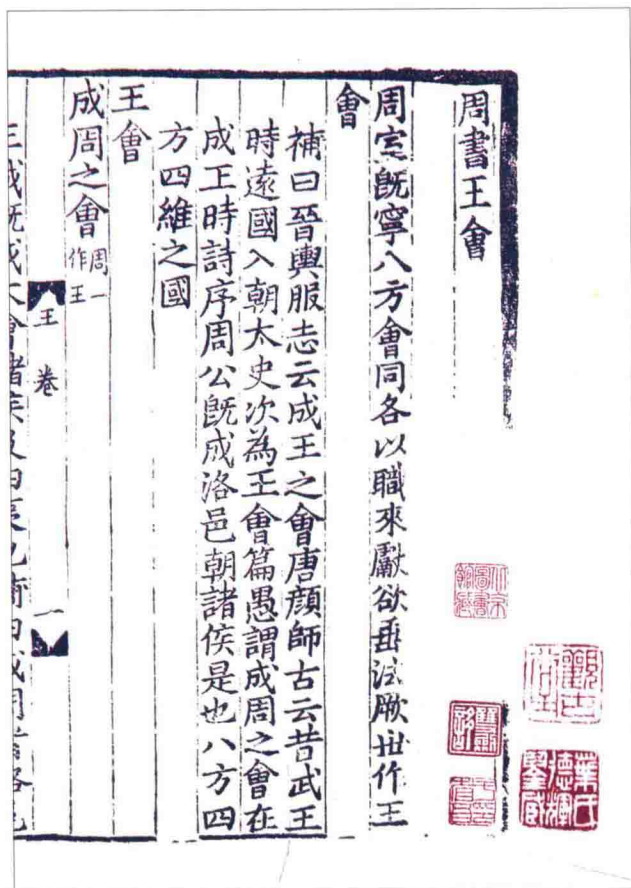 周書王會
周室旣寧八方會同各以職來獻欲垂法厥世作王
會
補曰晉輿服志云成王之會唐顔師古云昔武王
時遠國入朝太史次為王會篇愚謂成周之會在
成王時詩序周公旣成洛邑朝諸侯是也八方四
方四維之國
王會
成周之會周一作王
王 卷 一
王城旣成大會諸侯及四夷也
觀古
葉氏德輝鑒藏